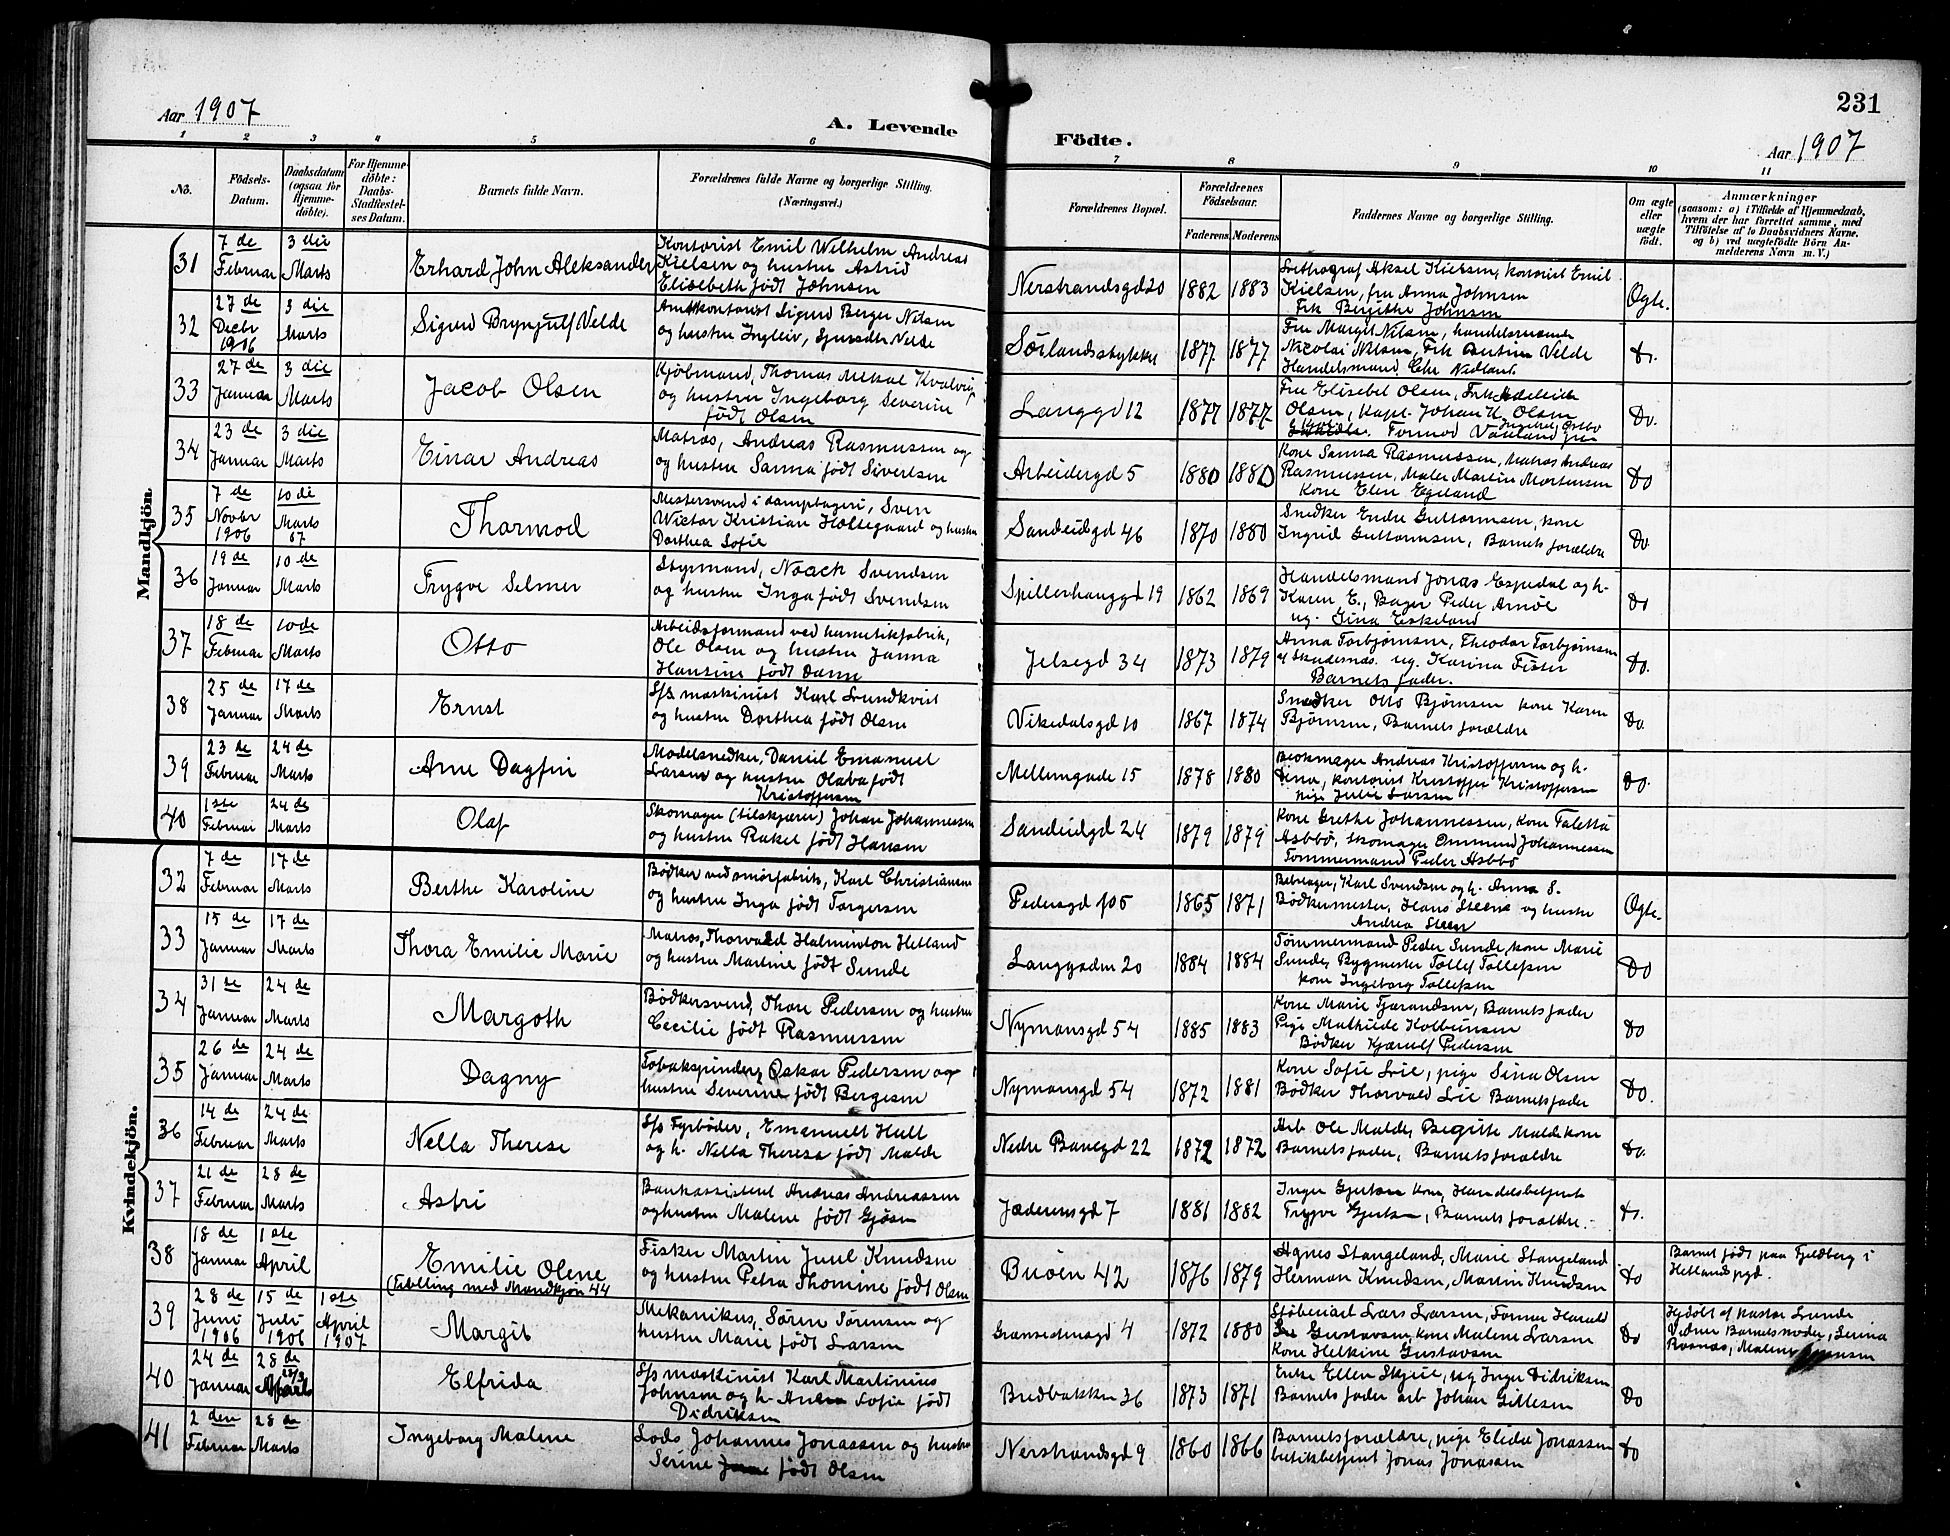 Aar 1907
A. Levende
Födte.
231
Aar 1907
1 2 3 4 5 6 7 8 9 10 11
No.
Födsels-Datum.
Daabsdatum (ogsaa for Hjemme-döbte).
For Hjemme-döbte: Daabs-Stadfæstelses Datum.
Barnets fulde Navn.
Forældrenes fulde Navne og borgerlige Stilling. (Næringsvei.)
Forældrenes Bopæl.
Forældrenes Födselsaar.
Faderens. Moderens.
Faddernes Navne og borgerlige Stilling.
Om ægte eller uægte födt.
Anmærkninger
(saasom: a) i Tilfælde af Hjemmedaab, hvem der har forrettet samme, med Tilföielse af to Daabsvidners Navne, og b) ved uægtefödte Börn Anmelderens Navn m. V.)
Mandkjön.
31
7 de Februar
3 die Marts
Erhard John Aleksander
Kontorist Emil Wilhelm Andreas
Kielsen og hustru Astrid
Elisebeth født Johnsen
Nerstrandsgd 20
1882 1883
Lithograf Aksel Kielsen, kontorist Emil
Kielsen, fru Anna Johnsen
Frk Bergithe Johnsen
Ægte.
32
27 de Decbr 1906
3 die Marts
Sigurd Brynjulf Velde
Amtskontorist Sigurd Berger Nilsen
og hustru Ingleiv, Velde
Sørlandsstykket
1877 1877
Fru Margit Nilsen, handelsmand
Nicolai Nilsen, Frk Velde
Handelsmand Chr Nedland
Do.
33
27 de Januar
3 die Marts
Jacob Olsen
Kjøbmand, Thomas Mikal Kvalvig
og hustru Ingeborg Severine
født Olsen
Langgd 12
1877 1877
Fru Elisebet Olsen, Frk
Olsen, Kapt. Johan K. Olsen
Do.
34
23 de Januar
3 die Marts
Einar Andreas
Matros, Andreas Rasmussen og
og hustru Sanna født Sivertsen
Arbeidergd 5
1880 1880
Kone Sanna Rasmussen, Matros Andreas
Rasmussen, Maler Martin Mortensen
Kone Elen Egeland
Do
35
7 de Novbr 1906
10 die Marts 07
Thormod
Mestersvend i damptageri, Sven
Victor Kristian Holtegaard og hustru
Dorthea Sofie
Sandeidgd 46
1870 1880
Snedker Endre Guttormsen, kone
Ingrid Guttormsen, Barnets forældre
Do.
36
19 de Januar
10 de Marts
Trygve Selmer
Styrmand, Noach Svendsen
og hustru Inga født Svendsen
Spilderhauggd 19
1862 1869
Handelsmand Jonas Espedal og h.
Karen E., Bager Peder Arnøe
ug. Sina Eskeland
Do
37
18 de Februar
10 de Marts
Otto
Arbeidsformand ved hermetikfabrik,
Ole Olsen og hustru Janna
Hansine født Dasne
Jelsegd 34
1873 1879
Anna Torbjørnsen, Theodor Torbjørnsen
af Skudesnæs. ug. Karina Fister
Barnets fader.
Do.
38
25 de Januar
17 de Marts
Ernst
S/s maskinist Karl Lundkvist
og hustru Dorthea født Olsen
Vikedalsgd 10
1867 1874
Snedker Otto Bjørnsen kone Karen
Bjørnsen, Barnets forældre
Do.
39
23 de Februar
24 de Marts
Arne Dagfin
Modelsnedker, Daniel Emanuel
Larsen og hustru Olava født
Kristoffersen
Mellemgade 15
1878 1880
Blokmager Andreas Kristoffersen og h.
Dina, kontorist Kristoffer Kristoffersen
pige Julie Larsen
Do.
40
1 ste Februar
24 de Marts
Olaf
Skomager (tilskjærer) Johan Johannessen
og hustru Rakel født Hansen
Sandeidgd 24
1879 1879
Kone Grethe Johannessen, Kone Taletta
Asbbø, skomager Ommund Johannessen
Tømmermand Peder Asbbø
Kvindekjön.
32
7 de Februar
17 de Marts
Berthe Karoline
Bødker ved smørfabrik, Karl Christiansen
og hustru Inga født Torgersen
Pedersgd 105
1865 1871
Karl Svendsen og h. Anna S.
Bødkermester, Hans Steen og hustru
Andrea Steen
Ægte.
33
15 de Januar
17 de Marts
Thora Emilie Marie
Matros, Thorvald Halminton Hetland
og hustru Martine født Sunde
Langgaden 20
1884 1884
Tømmermand Peder Sunde, kone Marie
Sunde, Bygmester Tollef Tollefsen
kone Ingeborg Tollefsen
Do
34
31 te Januar
24 de Marts
Margoth
Bødkersvend, Thore Pedersen og hustru
Cecilie født Rasmussen
Nymansgd 54
1885 1883
Kone Marie Tjerandsen, Barnets fader
Pige Mathilde Kolbeinsen
Bødker Kjærulf Pedersen
Do
35
26 de Januar
24 de Marts
Dagny
Tobakspinder, Oskar Pedersen og
hustru Severine født Bergesen
Nymansgd 54
1872 1881
Kone Sofie Lie, pige Sina Olsen
Bødker Thorvald Lie Barnets fader
Do.
36
14 de Februar
24 de Marts
Nella Therese
S/s Fyrbøder, Emanuelt Hult
og h. Nella Theresa født Malde
Nedre Banegd 22
1872 1872
Arb Ole Malde, Begitte Malde kone
Barnets fader, Barnets forældre
Do.
37
21 de Februar
28 de Marts
Astri
Bankassistent Andreas Andreassen
og hustru Malene født Gjøsen
Jæderensgd 7
1881 1882
Inger Gjertsen kone, Handelsbetjent
Trygve Gjertsen, Barnets forældre.
Do.
38
18 de Januar
1 ste April
Emilie Olene
(Tvilling med Mandkjøn 44
Fisker Martin Juul Knudsen
og hustru Petra Thomine født Olsen
Buøen 42
1876 1879
Agnes Stangeland, Marie Stangeland
Herman Knudsen, Martin Knudsen
Do
Barnet født paa Fjeldberg i
Hetlands pgd.
39
28 de Juni 1906
15 de Juli 1906
1 ste April 1907
Margit
Mekanikus, Søren Sørensen og
hustru Marie født Larsen
4
1872 1880
Støberiarb Lars Larsen, Former Harald
Gustavsen, kone Malene Larsen
Kone Helkine Gustavsen
Do
Hjdøbt af Pastor Lunde
Vidner Barnetsmoder, Serina
Rosnæs, Malene
40
24 de Januar
28 de 28/3 April
Elfrida
S/s maskinist Karl Martinius
Johnsen og h. Andrea Sofie født
Didriksen
Bredbakken 36
1873 1871
Enke Ellen Skjeie, ug Inger Didriksen
Barnets fader arb Johan Gillesen
Do
41
2 den Februar
28 de Marts
Ingeborg Malene
Lods Johannes Jonassen og hustru
Serine født Olsen
Nerstrandsgd 9
1860 1866
Barnets forældre, pige Elida Jonassen
butikbetjent Jonas Jonassen
Do